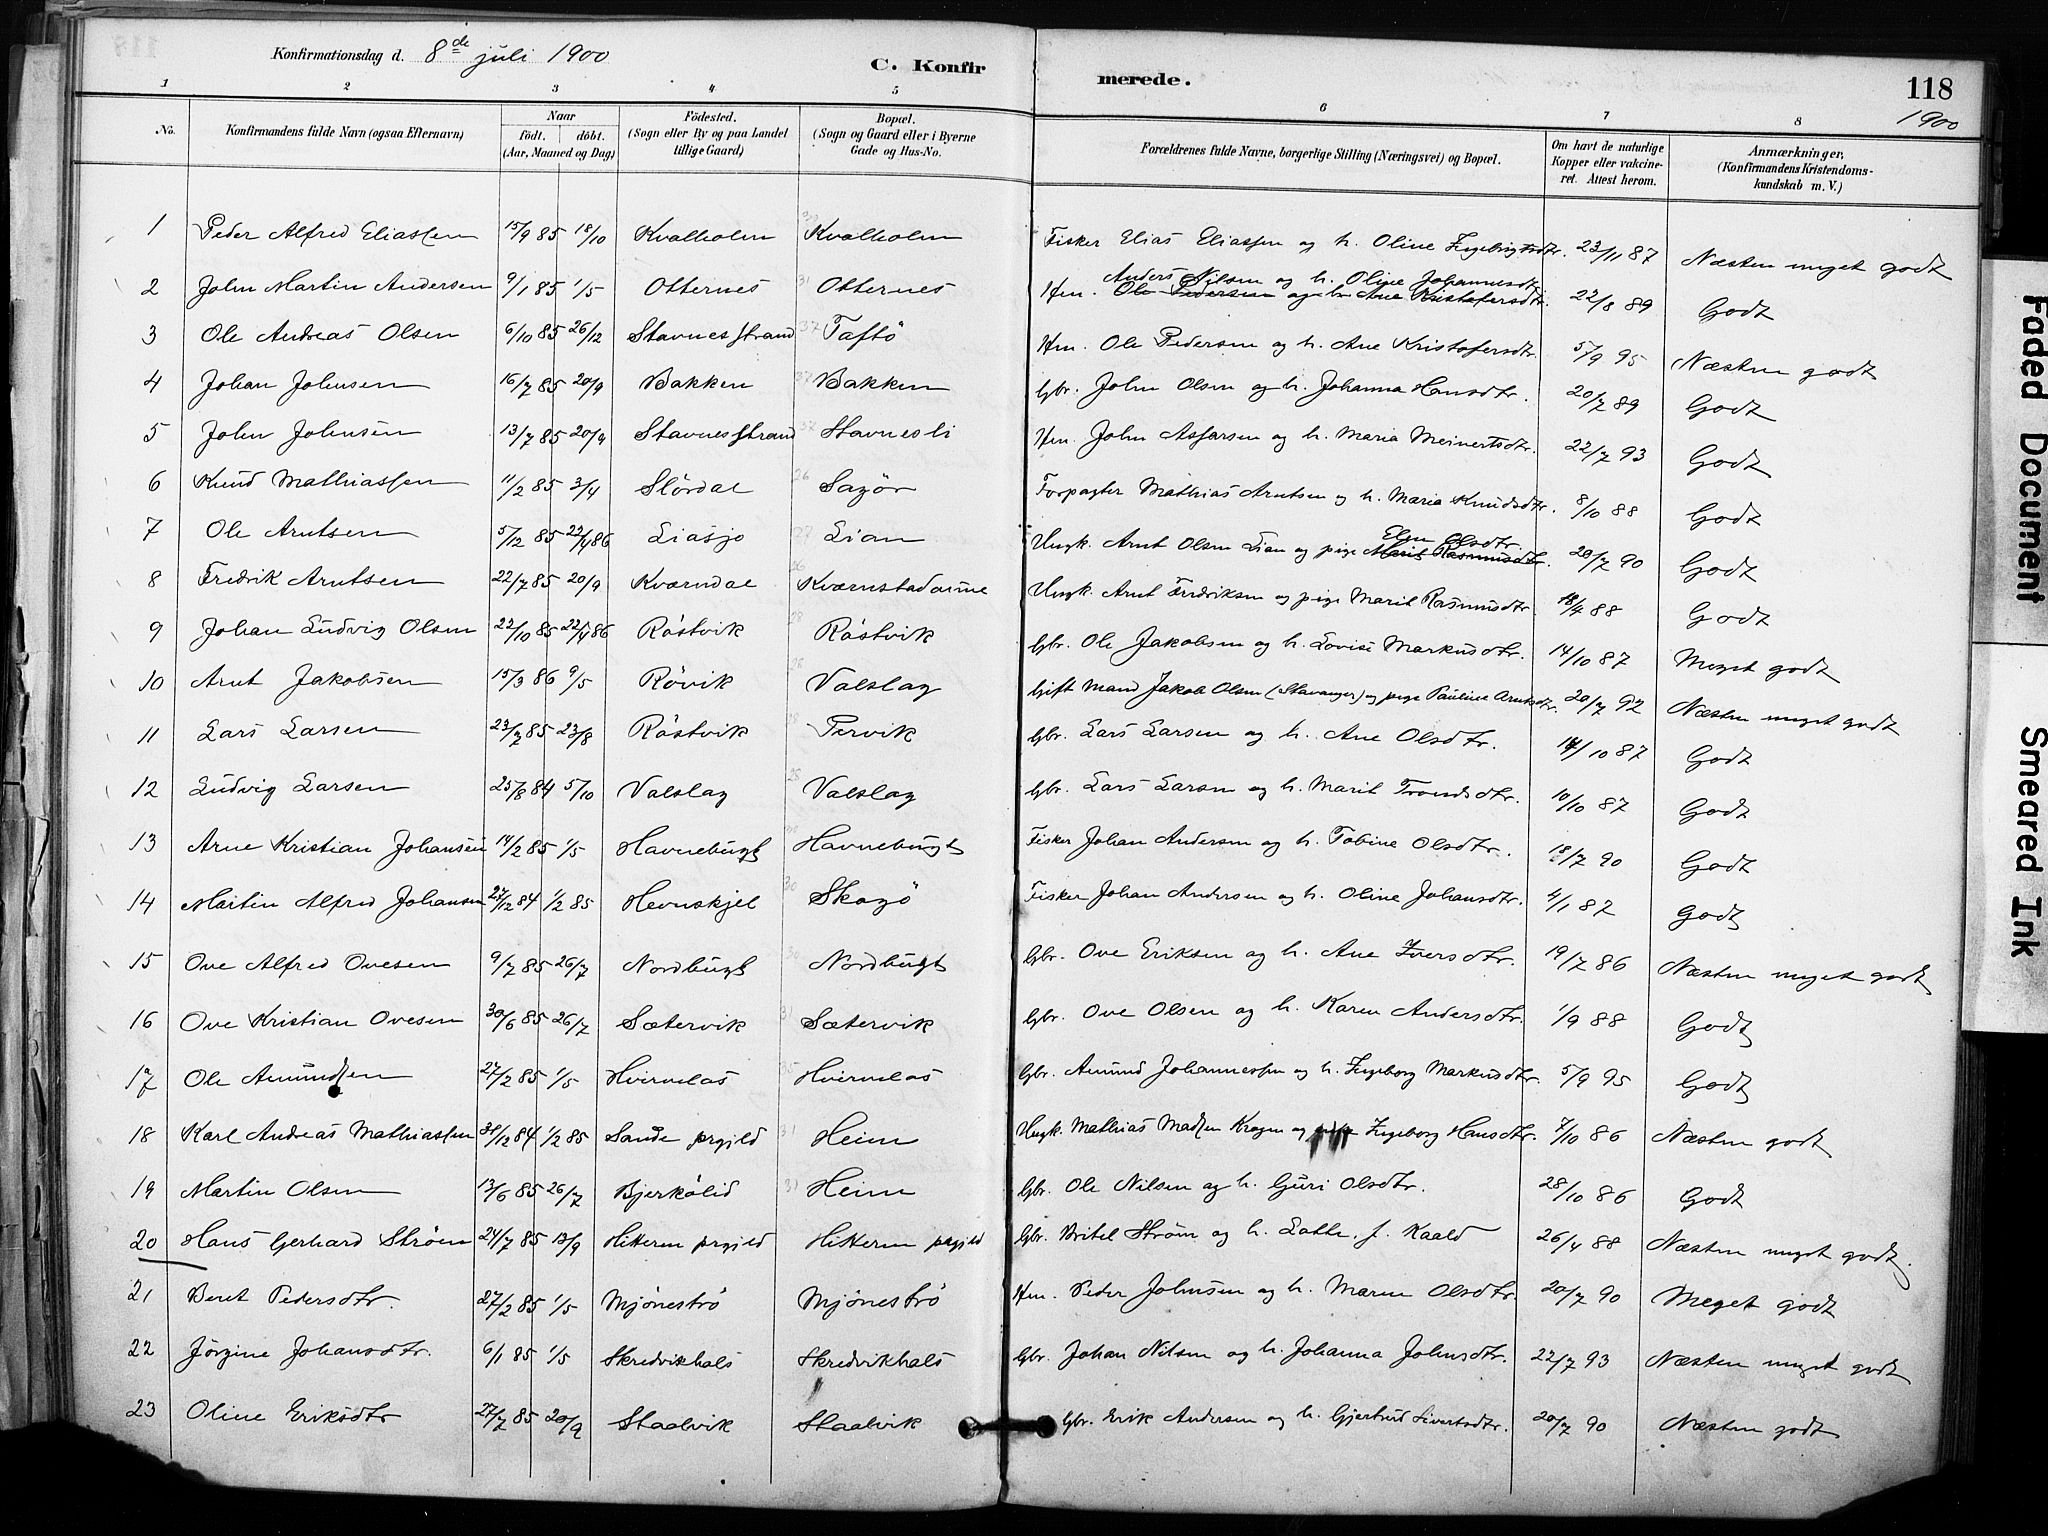 Konfirmationsdag d. 8de juli 1900
C. Konfirmerede.
118
1900
1 2 3 4 5 6 7 8
No. Konfirmandens fulde Navn (ogsaa Efternavn) Naar født. døbt. (Aar, Maaned og Dag) Fødested. (Sogn eller By og paa Landet tillige Gaard) Bopæl. (Sogn og Gaard eller i Byerne Gade og Hus-No. Forældrenes fulde Navne, borgerlige Stilling (Næringsvei) og Bopæl. Om havt de naturlige Kopper eller vakcineret. Attest herom. Anmærkninger, (Konfirmandens Kristendomskundskab m. V.)
1 Peder Alfred Eliassen 15/9 85 18/10 Kvalholm Kvalholm Fisker Elias Eliassen og h. Oline Ingebrigtsdtr. 23/11 87 Næsten meget godt
Anders Nilsen og h. Oline Johannesdtr
2 John Martin Andersen 9/1 85 1/5 Otternes 31 Otternes Hm. Ole Pedersen og h. Ane Kristofersdtr. 22/8 89 Godt
3 Ole Andreas Olsen 6/10 85 26/12 Stavnesstrand 37 Taftö Hm. Ole Pedersen og h. Ane Kristofersdtr. 5/9 95 Næsten godt
4 Johan Johnsen 16/7 85 20/9 Bakken 37 Bakken Gbr. John Olsen og h. Johanna Hansdtr. 20/7 89 Godt
5 John Johnsen 13/7 85 20/9 Stavnesstrand 37 Stavnesli Hm. John Asparsen og h. Maria Meinertsdtr. 22/7 93 Godt
6 Knud Mathiassen 11/2 85 3/4 Slördal 26 Sagör Forpagter Mathias Arntsen og h. Maria Knudsdtr. 8/10 88 Godt
Elen Olsdtr.
7 Ole Arntsen 5/12 85 22/4 86 Liasjö 27 Lian Ungk. Arnt Olsen Lian og pige Marit Rasmusdtr. 20/7 90 Godt
8 Fredrik Arntsen 22/7 85 20/9 Kværndal 26 Kværnstadvinne Ungk. Arnt Fredriksen og pige Marit Rasmusdtr 18/4 88 Godt
9 Johan Ludvig Olsen 22/10 85 22/4 86 Röstvik 28 Röstvik Gbr. Ole Jakobsen og h. Lovise Markusdtr. 14/10 87 Meget godt
10 Arnt Jakobsen 15/3 86 9/5 Rövik 28 Valslag Gift Mand Jakob Olsen (Stavanger) og pige Pauline Arntsdtr. 20/7 92 Næsten meget godt
11 Lars Larsen 23/7 85 23/8 Röstvik 28 Tervik Gbr. Lars Larsen og h. Ane Olsdtr. 14/10 87 Godt
12 Ludvig Larsen 25/8 84 5/10 Valslag 28 Valslag Gbr. Lars Larsen og h. Marit Trondsdtr. 10/10 87 Godt
13 Arne Kristian Johansen 14/2 85 1/5 Havnebugt Havnebugt Fisker Johan Andersen og h. Tobine Olsdtr. 18/7 90 Godt
14 Martin Alfred Johansen 27/12 84 1/2 85 Hevnskjel 30 Skogö Fisker Johan Andersen og h. Oline Johansdtr. 4/1 87 Godt
15 Ove Alfred Ovesen 9/7 85 26/7 Nordbugt 30 Nordbugt Gbr. Ove Eriksen og h. Ane Iversdtr. 19/7 86 Næsten meget godt
16 Ove Kristian Ovesen 30/6 85 26/7 Sætervik 31 Sætervik Gbr. Ove Olsen og h. Karen Andersdtr. 1/9 88 Godt
17 Ole Amundsen 27/2 85 1/5 Hvirvelas 35 Hvirvelas Gbr. Amund Johannessen og h. Ingeborg Markusdtr. 5/9 95 Godt
18 Karl Andreas Mathiassen 31/12 84 1/2 85 Sande prgjld 31 Heim Ungk. Mathias Madsen Krogen og pige Ingeborg Hansdtr. 7/10 86 Næsten godt
19 Martin Olsen 13/6 85 26/7 Bjerkölid 31 Heim Gbr. Ole Nilsen og h. Guri Olsdtr. 28/10 86 Godt
20 Hans Gerhard Ström 24/7 85 13/9 Hitteren prgjld Hitteren prgjld Gbr. Britel Ström og h. Lotte f. Kaald 26/4 88 Næsten meget godt.
21 Beret Pedersdtr. 27/2 85 1/5 Mjöneströ Mjöneströ Hm. Peder Johnsen og h. Maren Olsdtr. 20/7 90 Meget godt
22 Jörgine Johansdtr. 6/1 85 1/5 Skredvikhals Skredvikhals Gbr. Johan Nilsen og h. Johanna Johnsdtr. 22/7 93 Næsten meget godt
23 Oline Eriksdtr 27/7 85 20/9 Staalvik Staalvik Gbr. Erik Andersen og h. Gjertrud Sivertsdtr. 20/7 90 Næsten godt
Faded Document
Smeared Ink